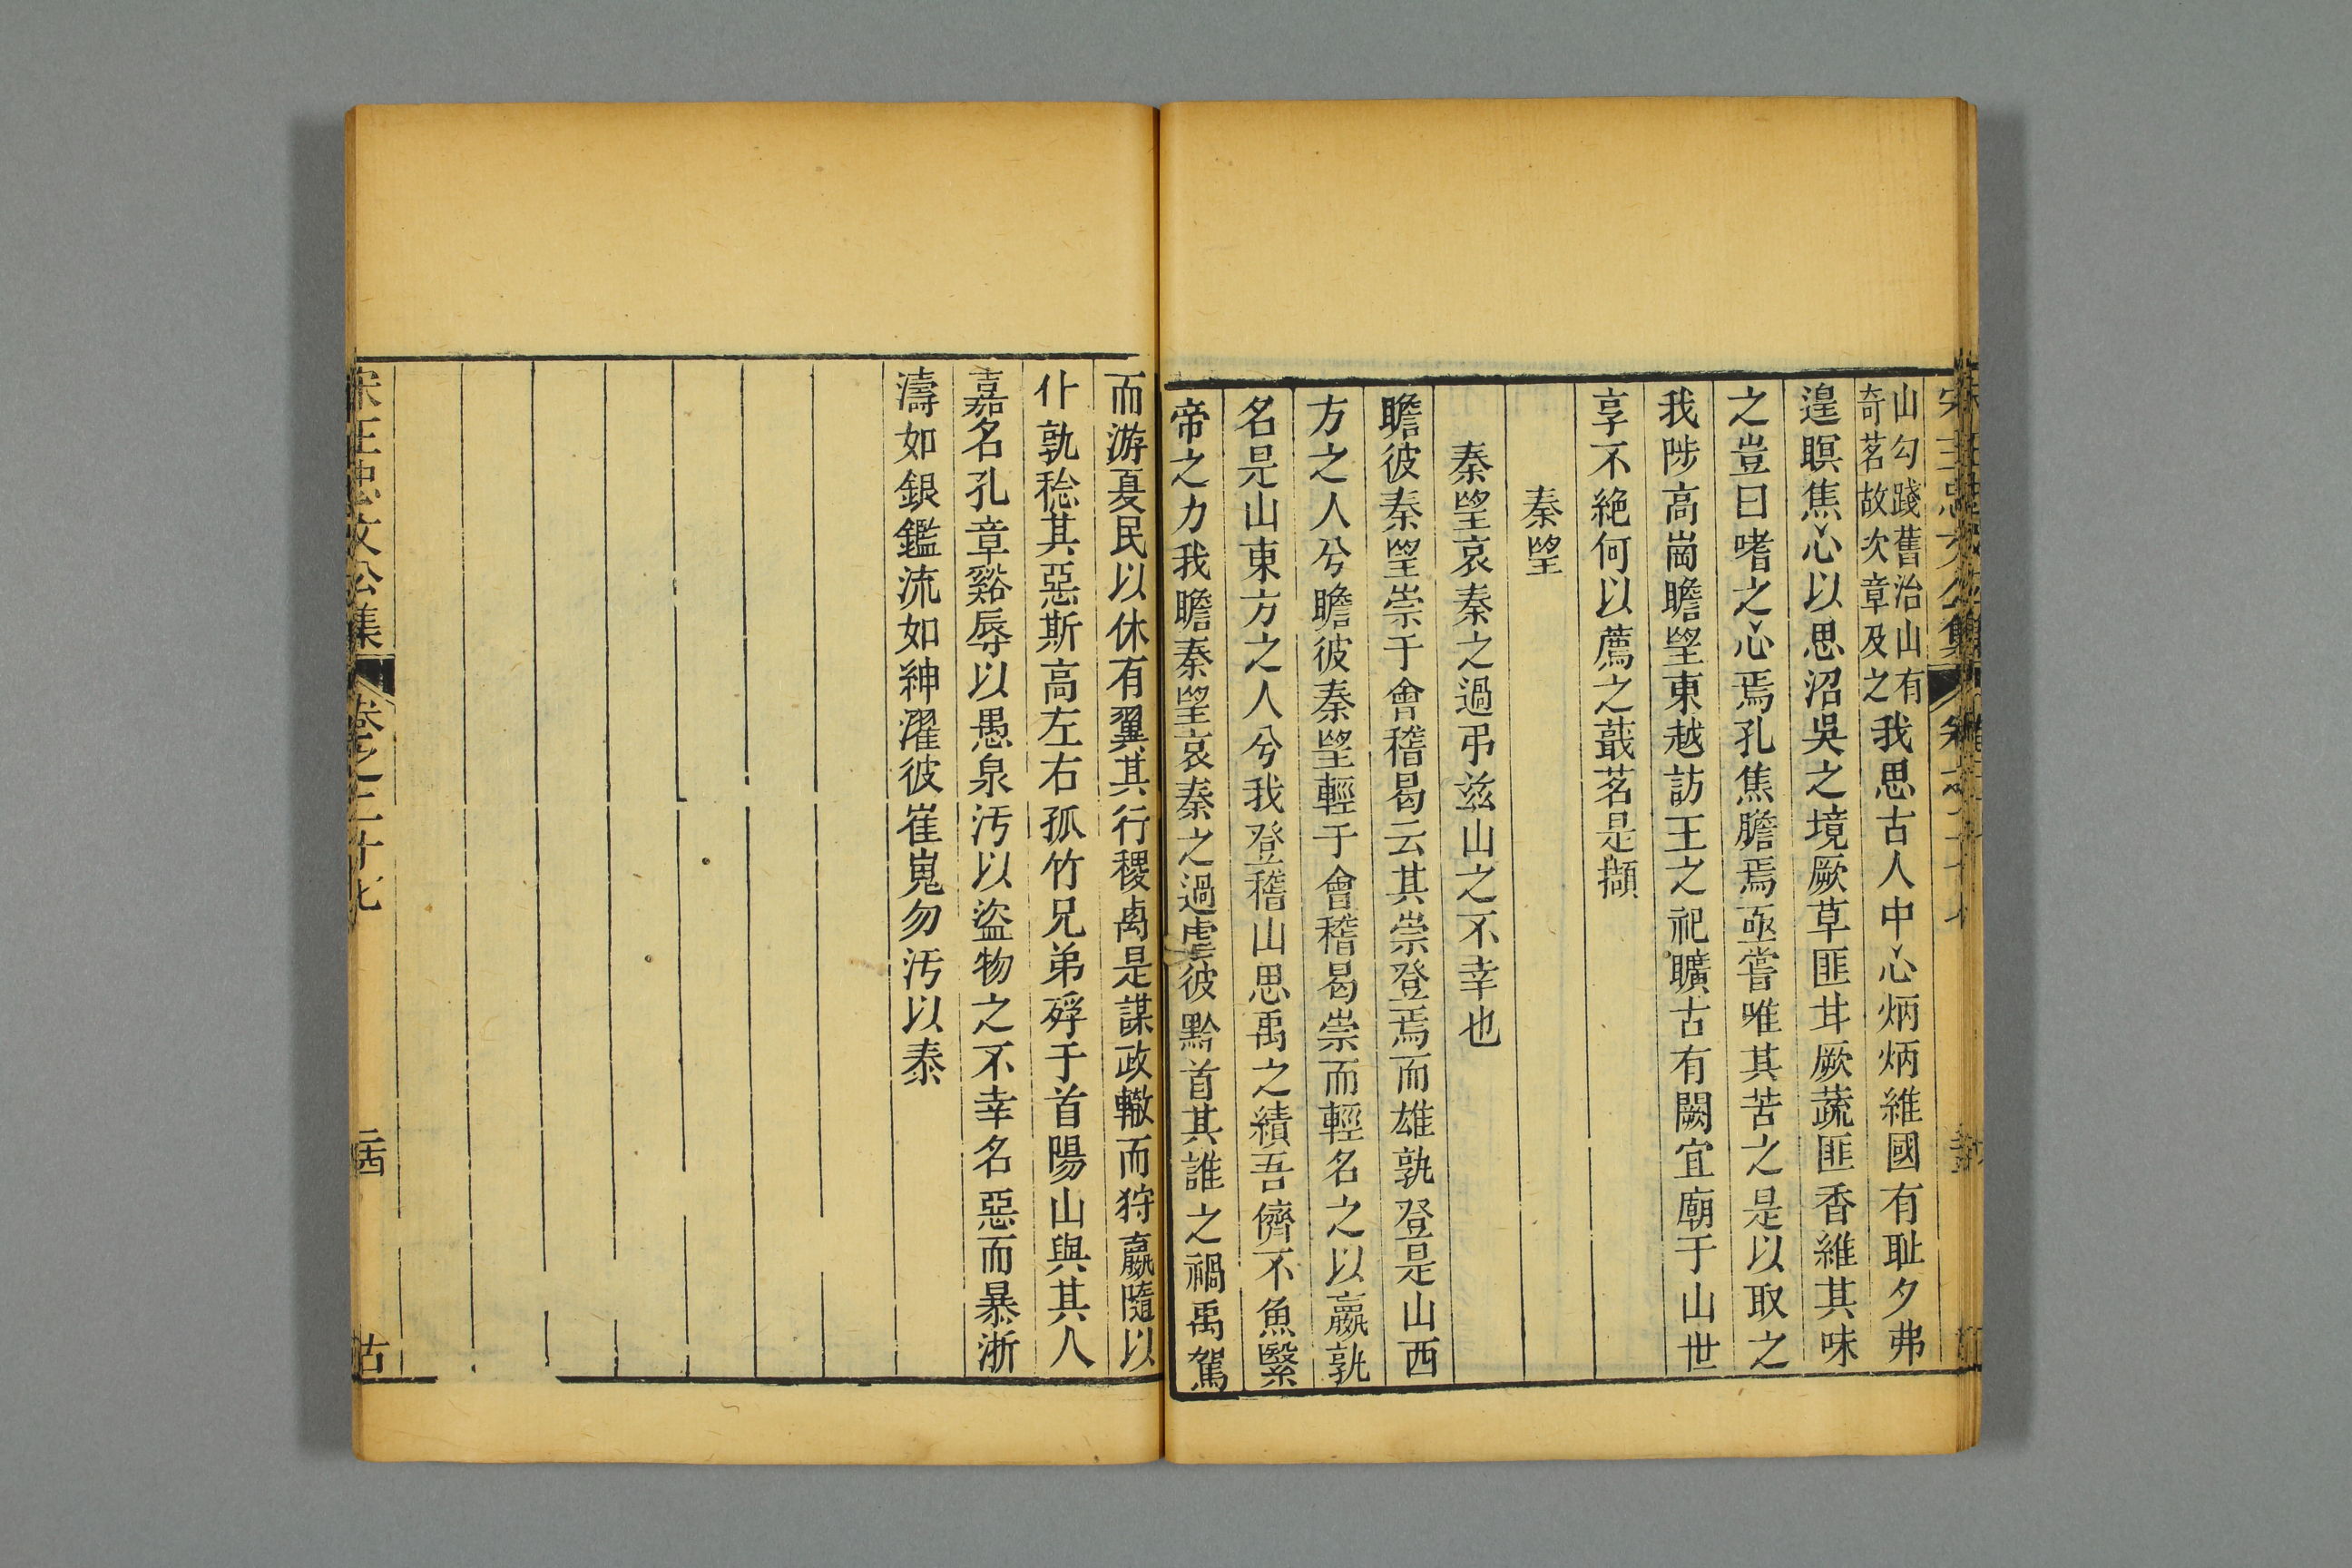 山勾踐舊治山有
奇茗故次章及之
我思古人中心炳炳維國有耻夕弗
遑瞑焦心以思沼吳之境厥草匪甘厥蔬匪香維其味
之豈曰嗜之心焉孔焦膽焉亟嘗唯其苦之是以取之
我陟高崗瞻望東越訪王之祀曠古有闕宜廟于山世
享不絕何以薦之蕺茗是擷
秦望
秦望哀秦之過弔兹山之不幸也
瞻彼秦望崇于會稽曷云其崇登焉而雄孰登是山西
方之人兮瞻彼秦望輕于會稽曷崇而輕名之以嬴孰
名是山東方之人兮我登稽山思禹之績吾儕不魚緊
帝之力我瞻秦望哀秦之過虐彼黔首其誰之禍禹駕
而游夏民以休有翼其行稷卨是謀政轍而狩嬴隨以
仆孰稔其惡斯高左右孤竹兄弟殍于首陽山與其人
嘉名孔章谿辱以愚泉汚以盜物之不幸名惡而暴浙
濤如銀鑑流如紳濯彼崔嵬勿汚以秦
宋王忠文公集
卷之二十七